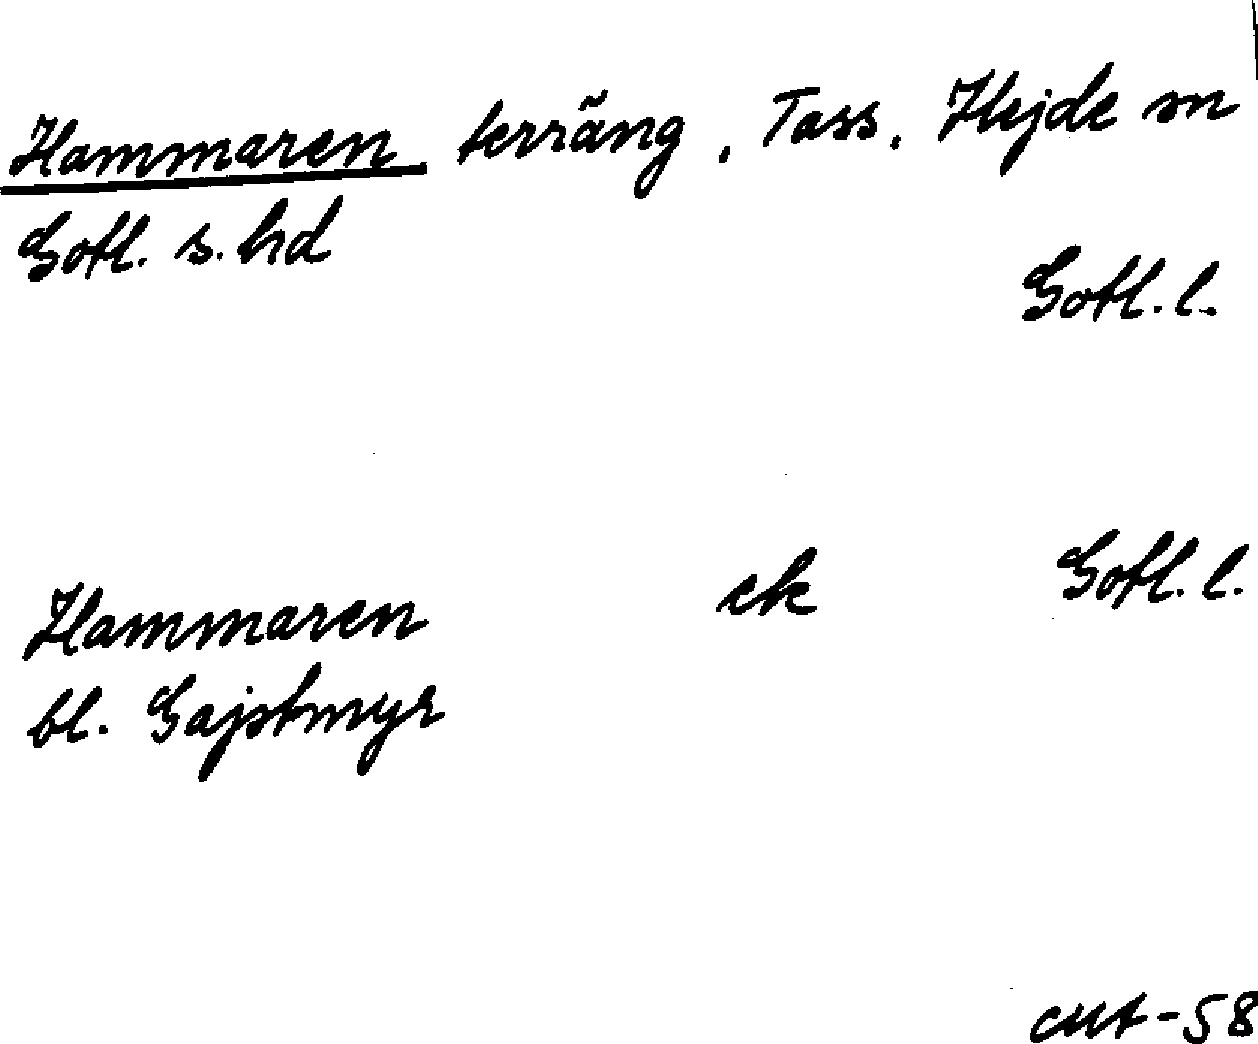 Hammaren terräng, Tass, Hejde sn
Gotl. s. hd
Gotl. l.
Hammaren ek Gotl. l.
bl. Gajstmyr
-58